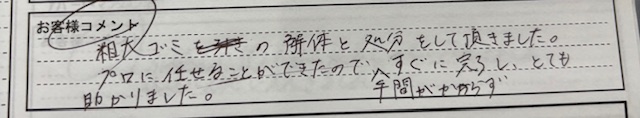 お客様コメント
粗大ゴミの解体と処分をして頂きました。
プロに任せることができたので、手間がかからずすぐに完了し、とても
助かりました。